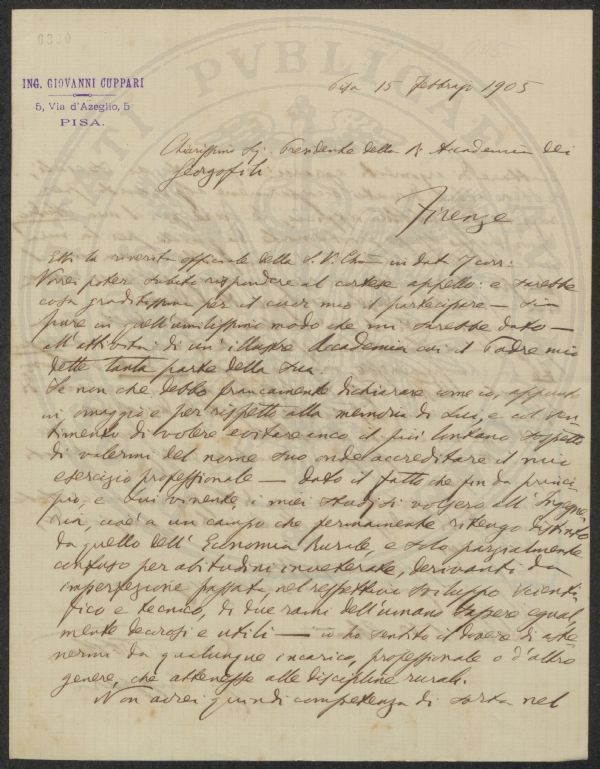 0300
ING. GIOVANNI CUPPARI
5, Via d'Azeglio, 5
PISA.
Pisa 15 Febbraio 1905
Chiarissimo Sig. Presidente della R. Accademia dei
Georgofili
Firenze
Ebbi la riverita officiale della S. V. Chma in data 7 corr:
Vorrei poter subito rispondere al cortese appello: e sarebbe
cosa graditissima per il cuor mio il partecipare — sia
pure in quell'umilissimo modo che mi sarebbe dato —
all'attività di un'illustre Accademia cui il Padre mio
dette tanta parte della Sua.
Se non che debbo francamente dichiarare come io, appunto
in omaggio e per rispetto alla memoria di Lui, e col sen-
timento di volere evitare anco il più lontano sospetto
di valermi del nome suo onde accreditare il mio
esercizio professionale — dato il fatto che fin da princi-
pio, e Lui vivente, i miei studj si volsero all'Ingegne-
ria, cioè a un campo che fermamente ritengo distinto
da quello dell'Economia Rurale, e solo parzialmente
confuso per abitudini inveterate, derivanti da
imperfezione passata nel rispettivo sviluppo scienti-
fico e tecnico, di due rami dell'umano sapere egual-
mente decorosi e utili — io ho sentito il dovere di aste-
nermi da qualunque incarico, professionale o d'altro
genere, che attenesse alle discipline rurali.
Non avrei quindi competenza di sorta nel